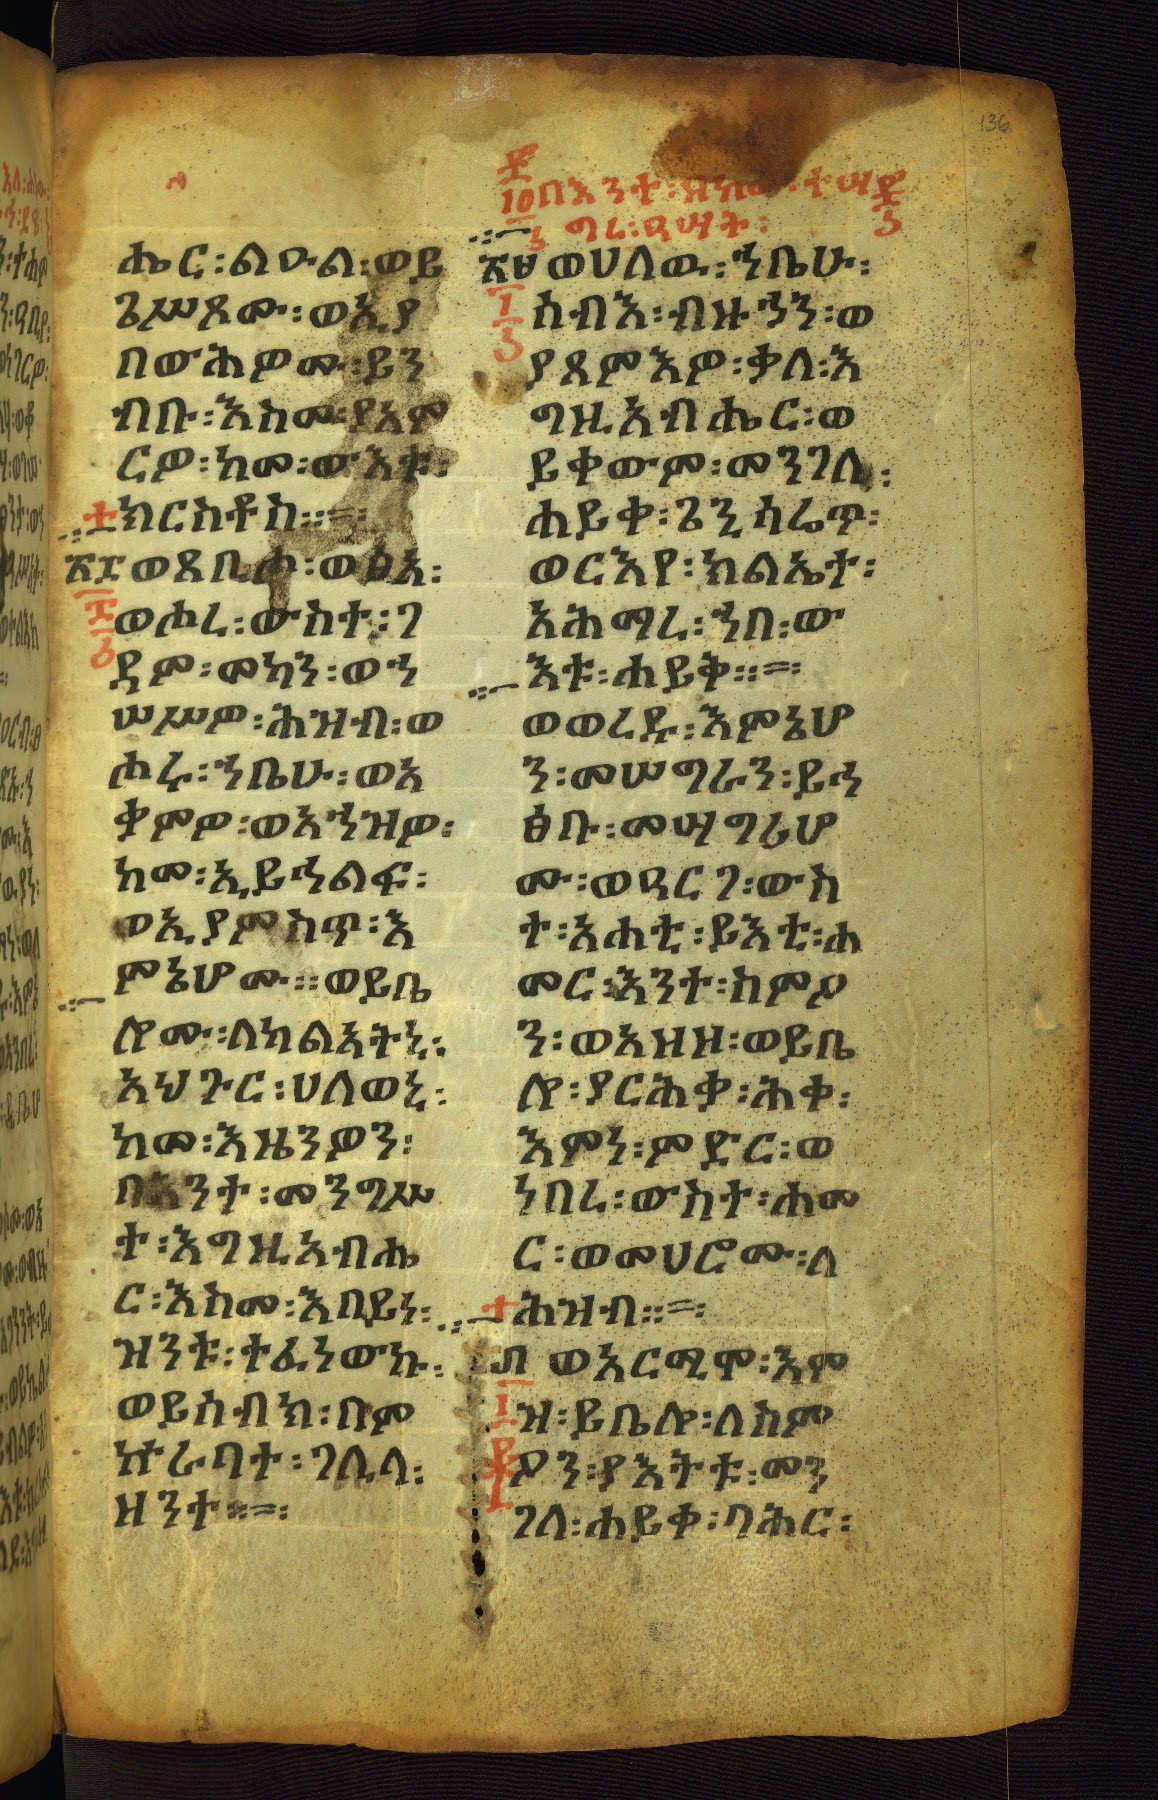 ሔር፡ልዑል፡ወይ
ጌሥጾሙ፡ወኢያ
በውሕዎሙ፡ይን
ብቡ፡እስመ፡ያአም
ርዎ፡ከመ፡ውእቱ፡
ክርስቶስ።
፳፰ወጸቢሖ፡ወፅአ፡
ወሖረ፡ውስተ፡ገ
ዳም፡መካን፡ወኀ
ሠሥዎ፡ሕዝብ፡ወ
ሖሩ፡ኀቤሁ፡ወአ
ቀምዎ፡ወአኀዝዎ፡
ከመ፡ኢይኅልፍ፡
ወኢያምስጥ፡እ
ምኔሆሙ።ወይቤ
ሎሙ፡ለካልኣትኒ፡
አህጉር፡ሀለወኒ፡
ከመ፡እዜንዎን፡
በእንተ፡መንግሥ
ተ፡እግዚአብሔ
ር፡እስመ፡እበይነ፡
ዝንቱ፡ተፈነውኩ፡
ወይሰብክ፡በም
ኵራባተ፡ገሊላ፡
ዘንተ።
፲፬በእንተ፡
ግረ፡ዓሣት፡
፳፱ወሀለው፡ኀቤሁ፡
ሰብእ፡ብዙኅን፡ወ
ያጸምእዎ፡ቃለ፡እ
ግዚአብሔር፡ወ
ይቀውም፡መንገለ፡
ሐይቀ፡ጌንሳሬጥ፡
ወርእየ፡ክልኤተ፡
አሕማረ፡ኀበ፡ው
እቱ፡ሐይቅ።
ወወረዱ፡እምኔሆ
ን፡መሠግራን፡ይኅ
ፅቡ፡መሣግሪሆ
ሙ፡ወዓርገ፡ውስ
ተ፡አሐቲ፡ይእቲ፡ሐ
መር፡እንተ፡ስምዖ
ን፡ወአዝዘ፡ወይቤ
ሎ፡ያርሕቃ፡ሕቀ፡
እምነ፡ምድር፡ወ
ነበረ፡ውስተ፡ሐመ
ር፡ወመሀሮሙ፡ለ
ሕዝብ።
፴ወአርሚሞ፡እም
ዝ፡ይቤሎ፡ለስም
ዖን፡ያእትቱ፡መን
ገለ፡ሐይቀ፡ባሕር፡
136